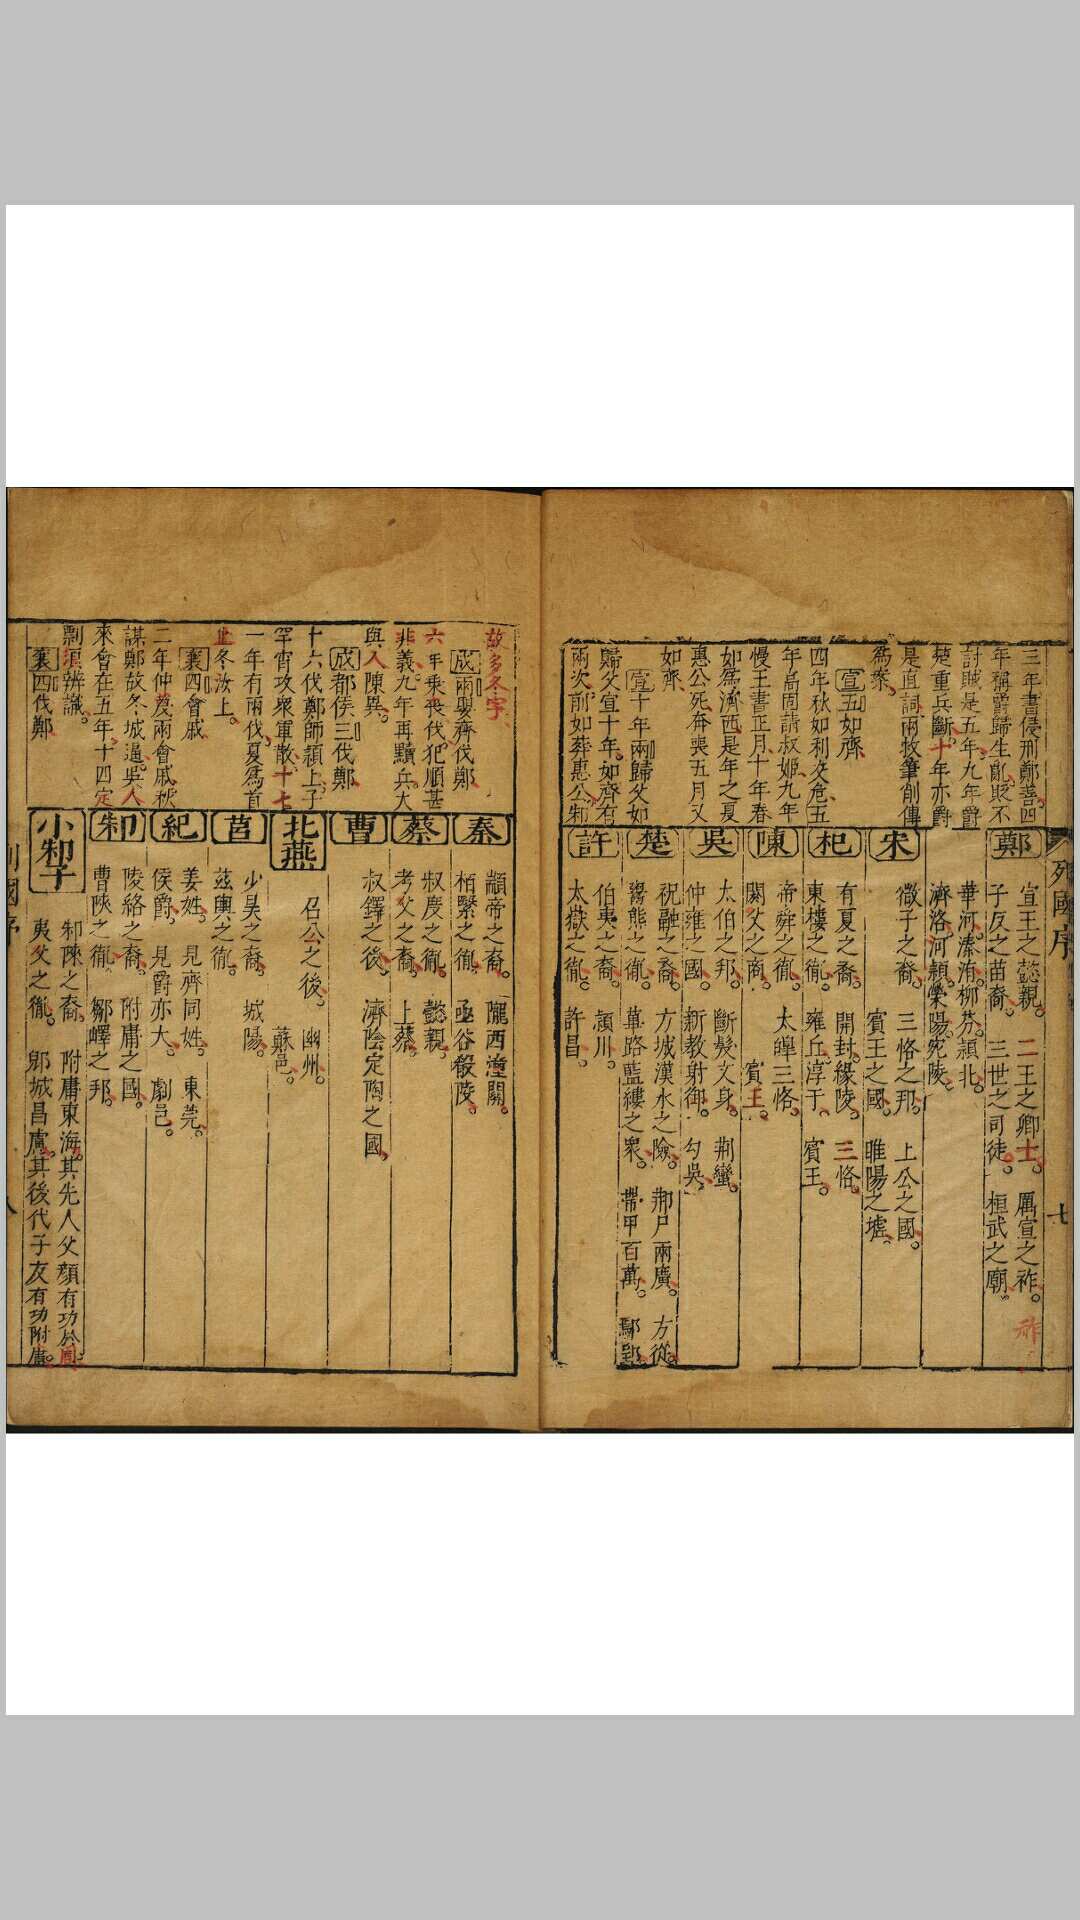 三年書侵刑鄭善四
年稱爵歸生亂貶不
討賊是五年九年爵
楚重兵斷十年亦爵
是直詞兩牧筆削傳
為案
宣五如齊
四年秋如利交危五
年高固請叔姬九年
慢王書正月十年春
如為濟西是年之夏
惠公死奔喪五月又
如齊
宣十年兩歸父如
歸父宣十年如齊有
兩次前如葬惠公邾
列國序
七
鄭
宣王之懿親。二王之卿士。厲宣之祚。
祚
子友之苗裔。三世之司徒。桓武之廟。
華河溱洧柳芬潁北。
濟洛河潁滎陽宛陵。
宋
微子之裔。三恪之邦。上公之國。
賓王之國。睢陽之墟。
杞
有夏之裔。開封緣陵。三恪。
東樓之胤。雍丘淳于。賓王。
陳
帝舜之胤。太皥三恪。
閼父之商。賓王。
吳
太伯之邦。斷髮文身。荆蠻。
仲雍之國。新教射御。勾吳。
楚
祝融之裔。方城漢水之險。荆尸兩廣。方從。
鬻熊之胤。蓽路藍縷之衆。帶甲百萬。鄢郢。
許
伯夷之裔。潁川。
太嶽之胤。許昌。
故多冬字
成兩嬰齊伐鄭
六年乘喪伐犯順甚
非義九年再黷兵大
與入陳異。
成都侯三伐鄭
十六伐鄭師潁上子
罕宵攻衆軍散十七
一年有兩伐夏為首
止冬汝上。
襄四會戚
二年仲蔑兩會戚秋
謀鄭故冬城逼吳人
來會在五年十四定
剽須辨識。
襄四伐鄭
秦
顓帝之裔。隴西潼關。
栢翳之胤。函谷殽陵。
蔡
叔度之胤。懿親。
考父之裔。上蔡。
曹
叔鐸之後。濟陰定陶之國。
北燕
召公之後。幽州。
薊邑。
莒
少昊之裔。城陽。
茲輿之胤。
紀
姜姓。見齊同姓。東莞。
侯爵。見爵亦大。劇邑。
邾
陵絡之裔。附庸之國。
曹陝之胤。鄒嶧之邦。
小邾子
邾陝之裔。附庸東海。其先人父顏有功於周
夷父之胤。郳城昌慮。其後代子友有功附庸。